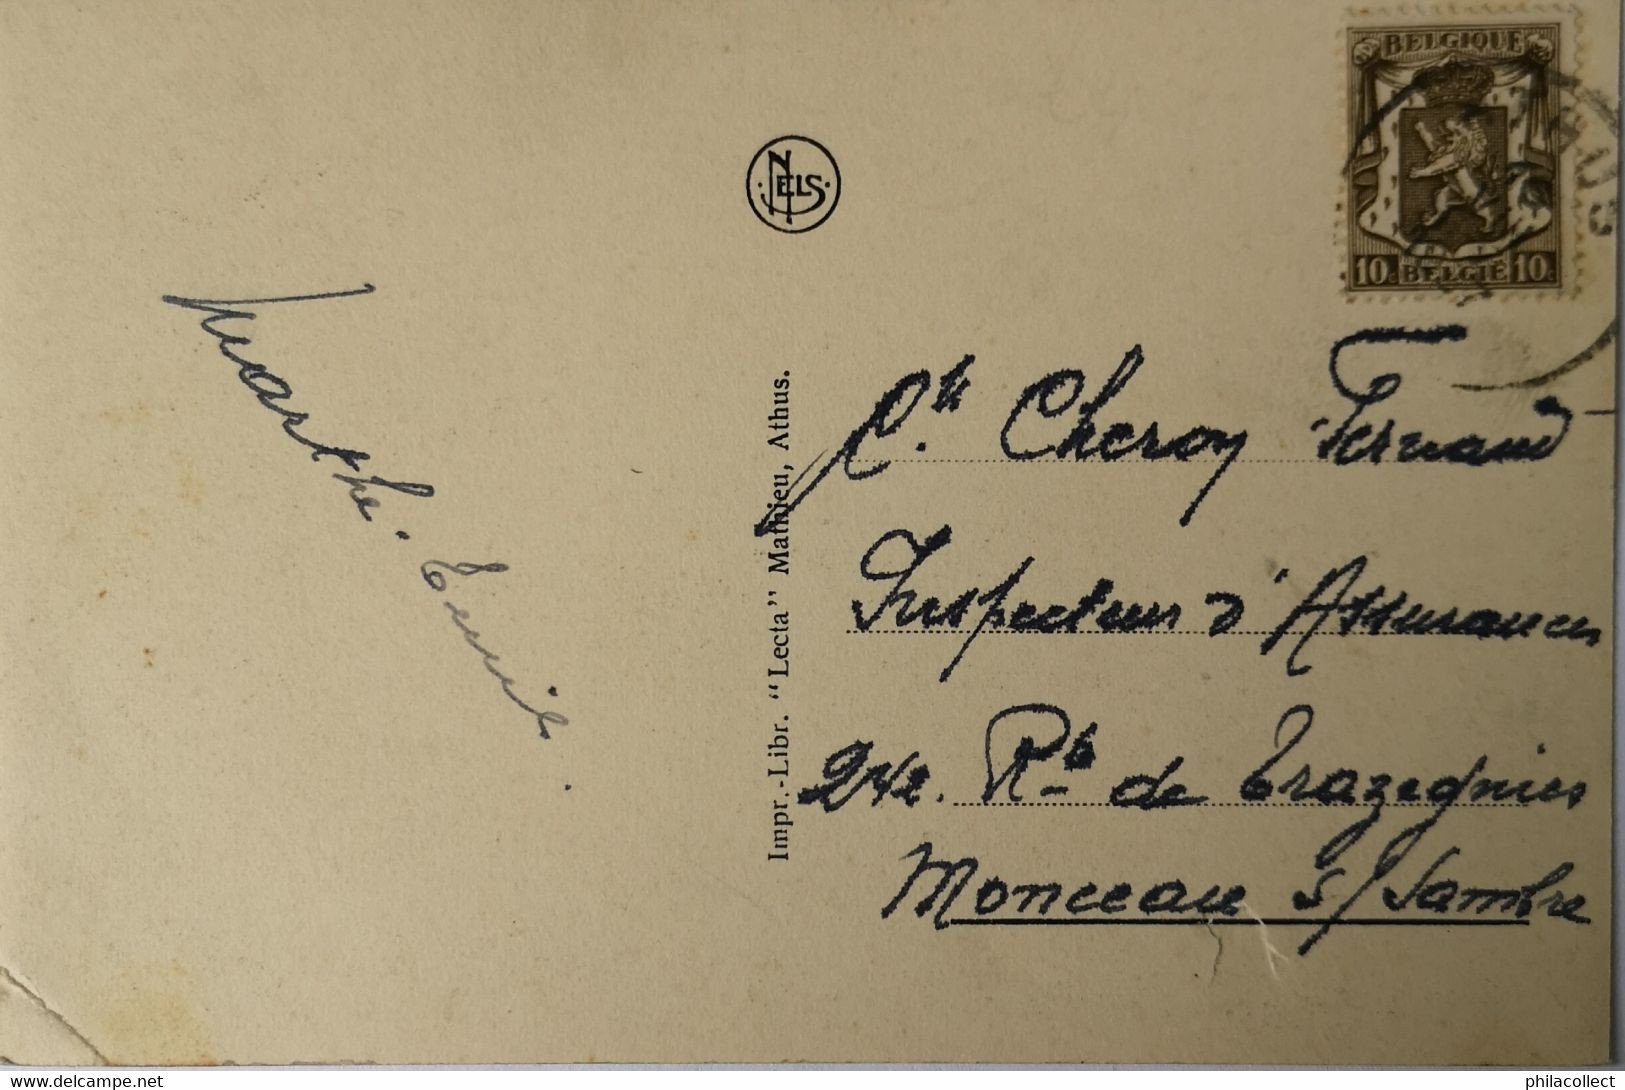 BELGIQUE
10c BELGIË 10c
NELS
Marthe. 
Impr.-Libr. "Lecta" Mathieu, Athus.
Cheroy Fernand
Inspecteur d'Assurances
242. Rte de Trazegnies
Monceau s/Sambre
philacollect